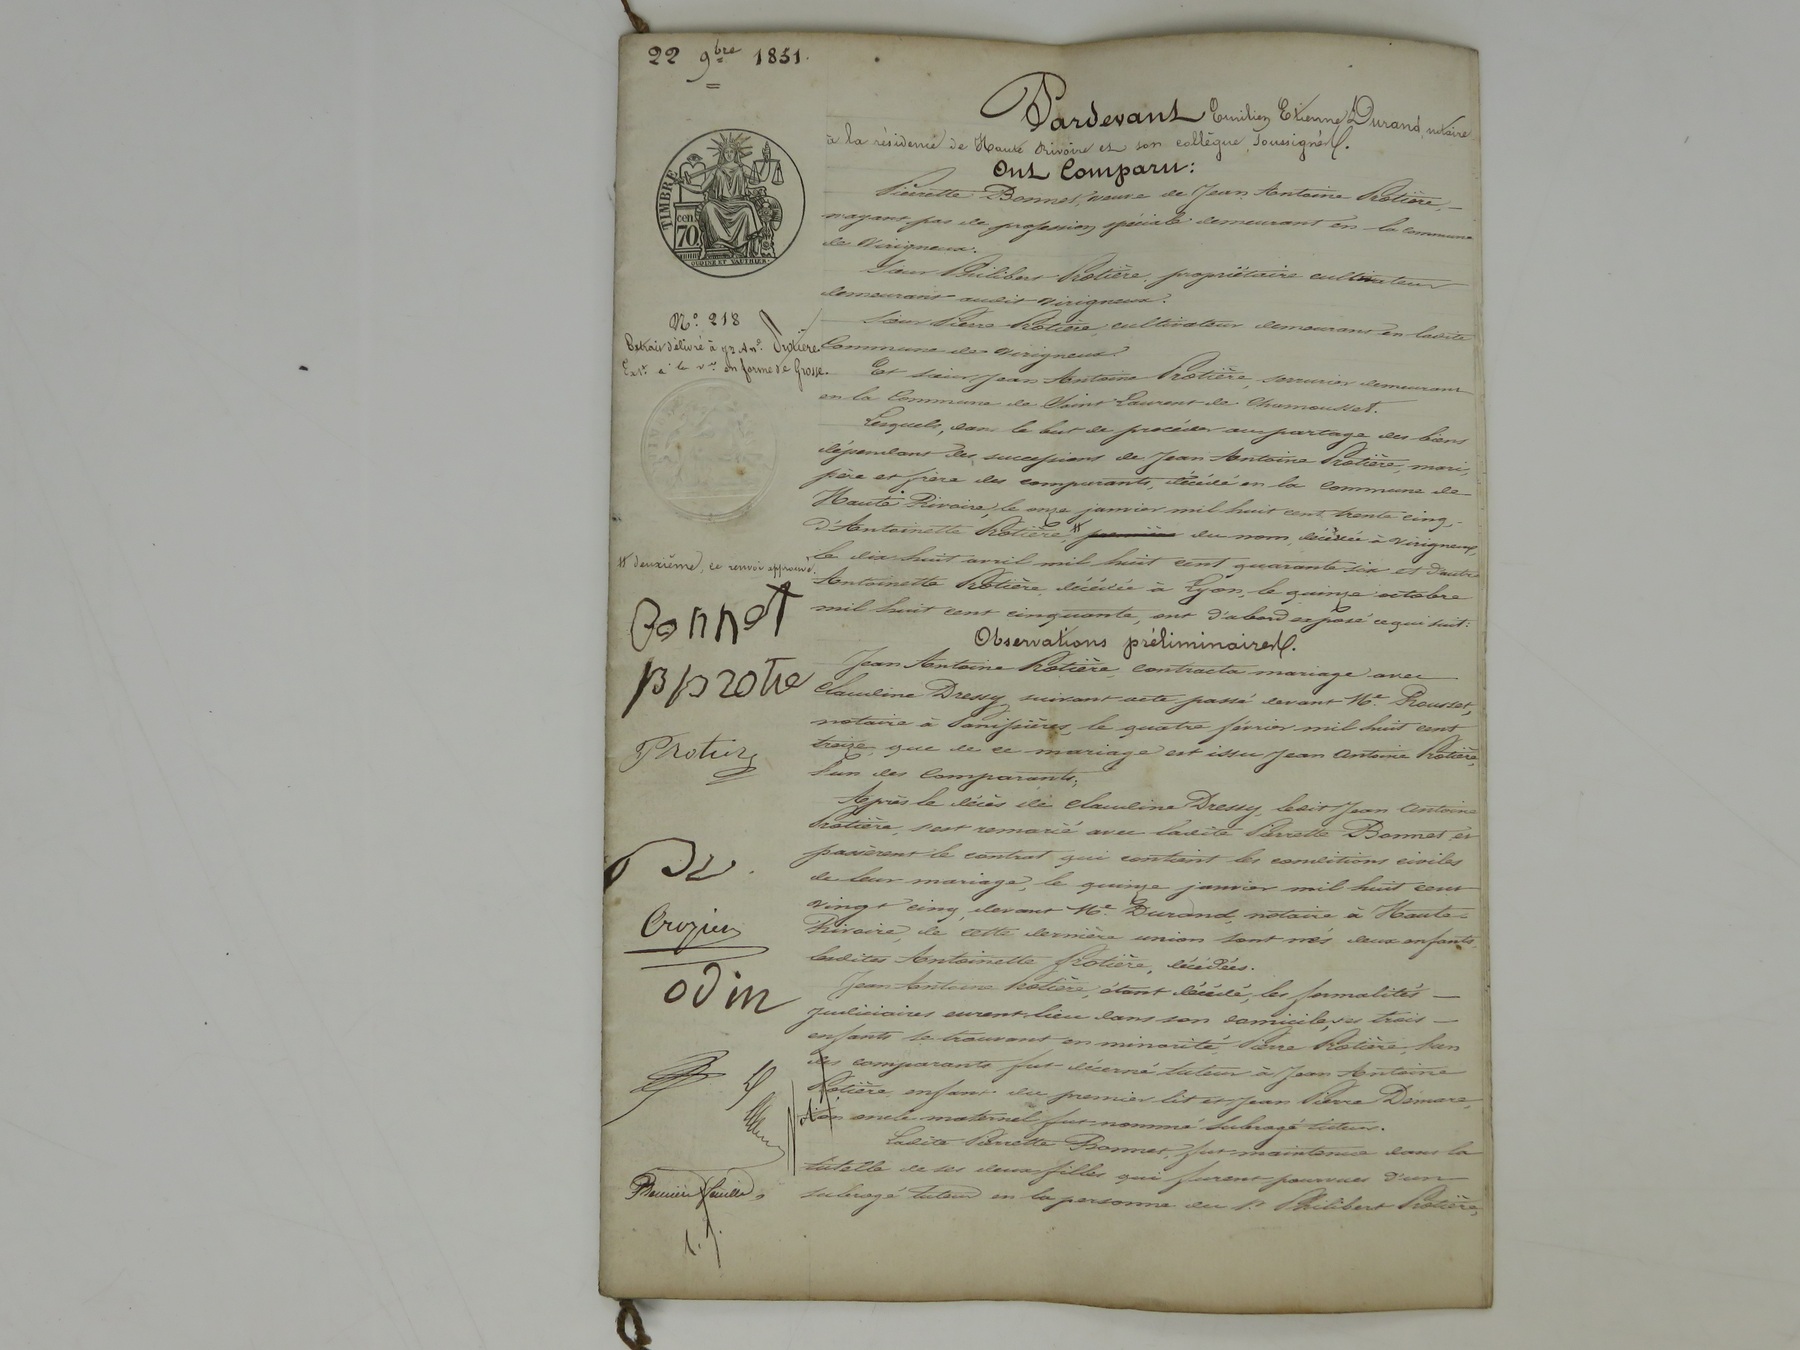 22 9bre 1851.
Pardevant Emilien Etienne Durand, notaire
à la résidence de Haute Rivoire et son collègue, soussignés.
Ont Comparu:
Pierrette Bonnet, veuve de Jean Antoine Protière,
n'ayant pas de profession spéciale demeurant en la commune
de Virigneux.
Sieur Philibert Protière, propriétaire cultivateur
demeurant audit Virigneux.
Sieur Pierre Protière, cultivateur demeurant en ladite
Commune de Virigneux.
Et sieur Jean Antoine Protière, serrurier demeurant
en la Commune de Saint Laurent de Chamousset.
Lesquels, dans le but de procéder au partage des biens
dépendant des successions de Jean Antoine Protière, mari,
père et frère des comparants, décédé en la commune de
Haute Rivoire, le onze janvier mil huit cent trente cinq,
d'Antoinette Protière, # première du nom, décédée à Virigneux,
le dix huit avril mil huit cent quarante six et d'autre
Antoinette Protière, décédée à Lyon, le quinze octobre
mil huit cent cinquante, ont d'abord exposé ce qui suit:
Observations préliminaires.
Jean Antoine Protière, contracta mariage avec
Claudine Dressy suivant acte passé devant Me. Rousset,
notaire à Panissières, le quatre février mil huit cent
treize, que de ce mariage est issu Jean Antoine Protière,
l'un des Comparants;
Après le décès de Claudine Dressy, ledit Jean Antoine
Protière, s'est remarié avec ladite Pierrette Bonnet et
passèrent le contrat qui contient les conditions civiles
de leur mariage, le quinze janvier mil huit cent
vingt cinq, devant Me. Durand, notaire à Haute-
Rivoire, de cette dernière union sont nés deux enfants,
lesdites Antoinette Protière, décédées.
Jean Antoine Protière, étant décédé, les formalités
judiciaires eurent lieu dans son domicile, ses trois
enfants se trouvant en minorité, Pierre Protière, l'un
des comparants fut décerné tuteur à Jean Antoine
Protière, enfant du premier lit et Jean Pierre Demare,
son oncle maternel fut nommé subrogé tuteur.
Ladite Pierrette Bonnet, fut maintenue dans la
tutelle de ses deux filles qui furent pourvues d'un
subrogé tuteur en la personne du Sr. Philibert Protière,
TIMBRE
70 cen
OUDINÉ ET VAUTHIER
No. 218
Extrait délivré à Jn Ane. Protière.
Ext. à la ve. en forme de Grosse.
# deuxième, ce renvoi approuvé.
Bonnet
pprotie
Protier
Crozier
odin
Première feuille